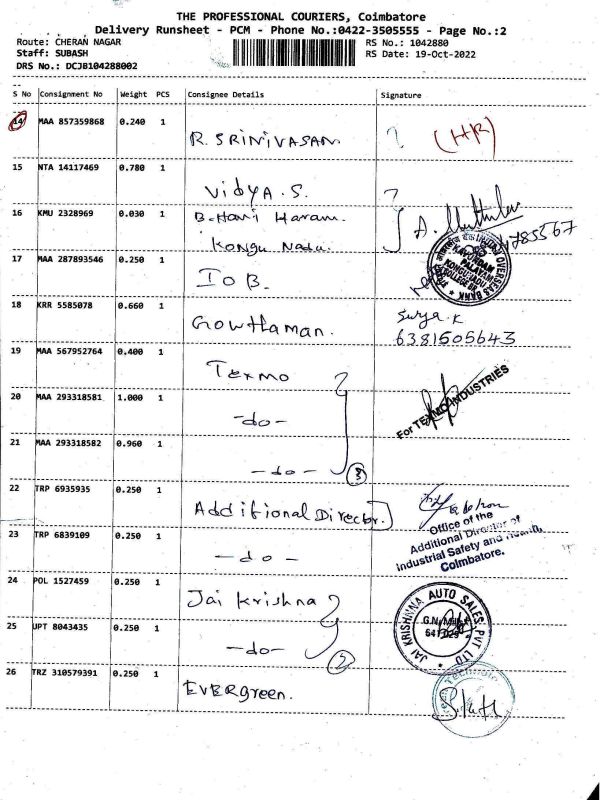 THE PROFESSIONAL COURIERS, Coimbatore
Delivery Runsheet - PCM - Phone No.:0422-3505555 - Page No.:2
Route: CHERAN NAGAR RS No.: 1042880
Staff: SUBASH RS Date: 19-Oct-2022
DRS No.: DCJB104288002
S No Consignment No Weight PCS Consignee Details Signature
14 MAA 857359868 0.240 1 R. SRINIVASAN. ? (HR)
15 NTA 14117469 0.780 1 Vidya.S.
16 KMU 2328969 0.030 1 B. Hari Haran.
Kongu Nadu.
17 MAA 287893546 0.250 1 IOB.
INDIAN OVERSEAS BANK
18 KRR 5585078 0.660 1 Gowthaman. Surya.K
6381505643
19 MAA 567952764 0.400 1 Texmo
For TEXMO INDUSTRIES
20 MAA 293318581 1.000 1 -do-
21 MAA 293318582 0.960 1 -do- 3
22 TRP 6935935 0.250 1 Additional Director.
Office of the
Additional Director of
Industrial Safety and Health,
Coimbatore.
23 TRP 6839109 0.250 1 -do-
24 POL 1527459 0.250 1 Jai Krishna
JAI KRISHNA AUTO SALES PVT LTD
G.N. Mills
641 029
25 UPT 8043435 0.250 1 -do- 2
26 TRZ 310579391 0.250 1 EVERGreen.